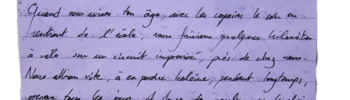 Quand nous avions ton âge, avec les copains le soir en
rentrant de l'école, nous faisions quelques kilomètres
à vélo sur un circuit improvisé, près de chez nous.
Nous allions vite, à en perdre haleine, pendant longtemps,
presque tous les jours. A force de